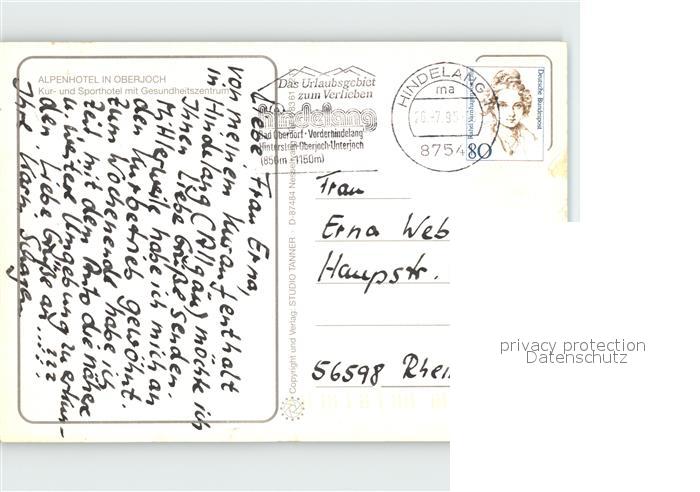 ALPENHOTEL IN OBERJOCH
Kur- und Sporthotel mit Gesundheitszentrum
Liebe Frau Erna,
von meinem Kuraufenthalt
in Hindelang (Allgäu) möchte ich
Ihnen liebe Grüße senden.
Mittlerweile habe ich mich an
den Kurbetrieb gewöhnt.
Zum Wochenende habe ich
Zeit mit dem Auto die nähere
u. weitere Umgebung zu erkun-
den. Liebe Grüße auf ...
Ihre Karin
© Copyright und Verlag: STUDIO TANNER · D-87484
Das Urlaubsgebiet
zum Verlieben
hindelang
Bad Oberdorf-Vorderhindelang
Hinterstein-Oberjoch-Unterjoch
(850m - 1150m)
HINDELANG
ma
8754
Deutsche Bundespost
80
Frau
Erna Web
Haupstr.
56598 Rhei
privacy protection
Datenschutz